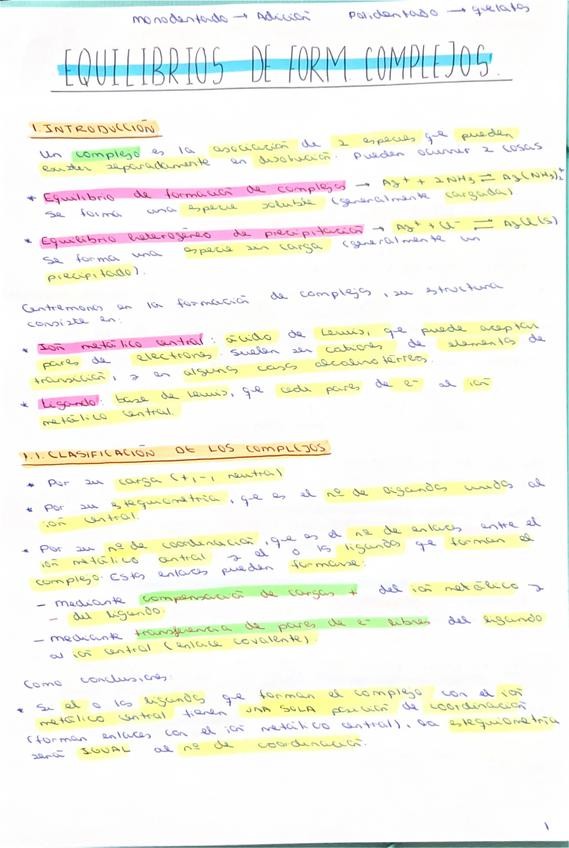 monodentado → Adición polidentado → quelatos
EQUILIBRIOS DE FORM COMPLEJOS.
1. INTRODUCCIÓN
Un complejo es la asociación de 2 especies que pueden
existir separadamente en disolución. Pueden ocurrir 2 cosas
* Equilibrio de formación de complejos → Ag⁺ + 2NH₃ ⇌ Ag(NH₃)₂⁺
Se forma una especie soluble (generalmente cargada)
* Equilibrio heterogéneo de precipitación → Ag⁺ + Cl⁻ ⇌ AgCl(s)
Se forma una especie sin carga (generalmente un
precipitado).
Centrémonos en la formación de complejos, su estructura
consiste en:
* Ión metálico central: ácido de Lewis, que puede aceptar
pares de electrones. Suelen ser cationes de elementos de
transición, y en algunos casos alcalinotérreos.
* Ligando: base de Lewis, que cede pares de e⁻ al ión
metálico central.
1.1. CLASIFICACIÓN DE LOS COMPLEJOS
* Por su carga (+, -, neutral)
* Por su estequiometría, que es el nº de ligandos unidos al
ión central.
* Por su nº de coordinación, que es el nº de enlaces entre el
ión metálico central y el o los ligandos que forman el
complejo. Estos enlaces pueden formarse:
- mediante compensación de cargas + del ión metálico y
- del ligando.
- mediante transferencia de pares de e⁻ libres del ligando
al ión central (enlace covalente)
Como conclusiones:
* Si el o los ligandos que forman el complejo con el ión
metálico central tienen UNA SOLA posición de coordinación
(forman enlaces con el ión metálico central), la estequiometría
será IGUAL al nº de coordinación.
1